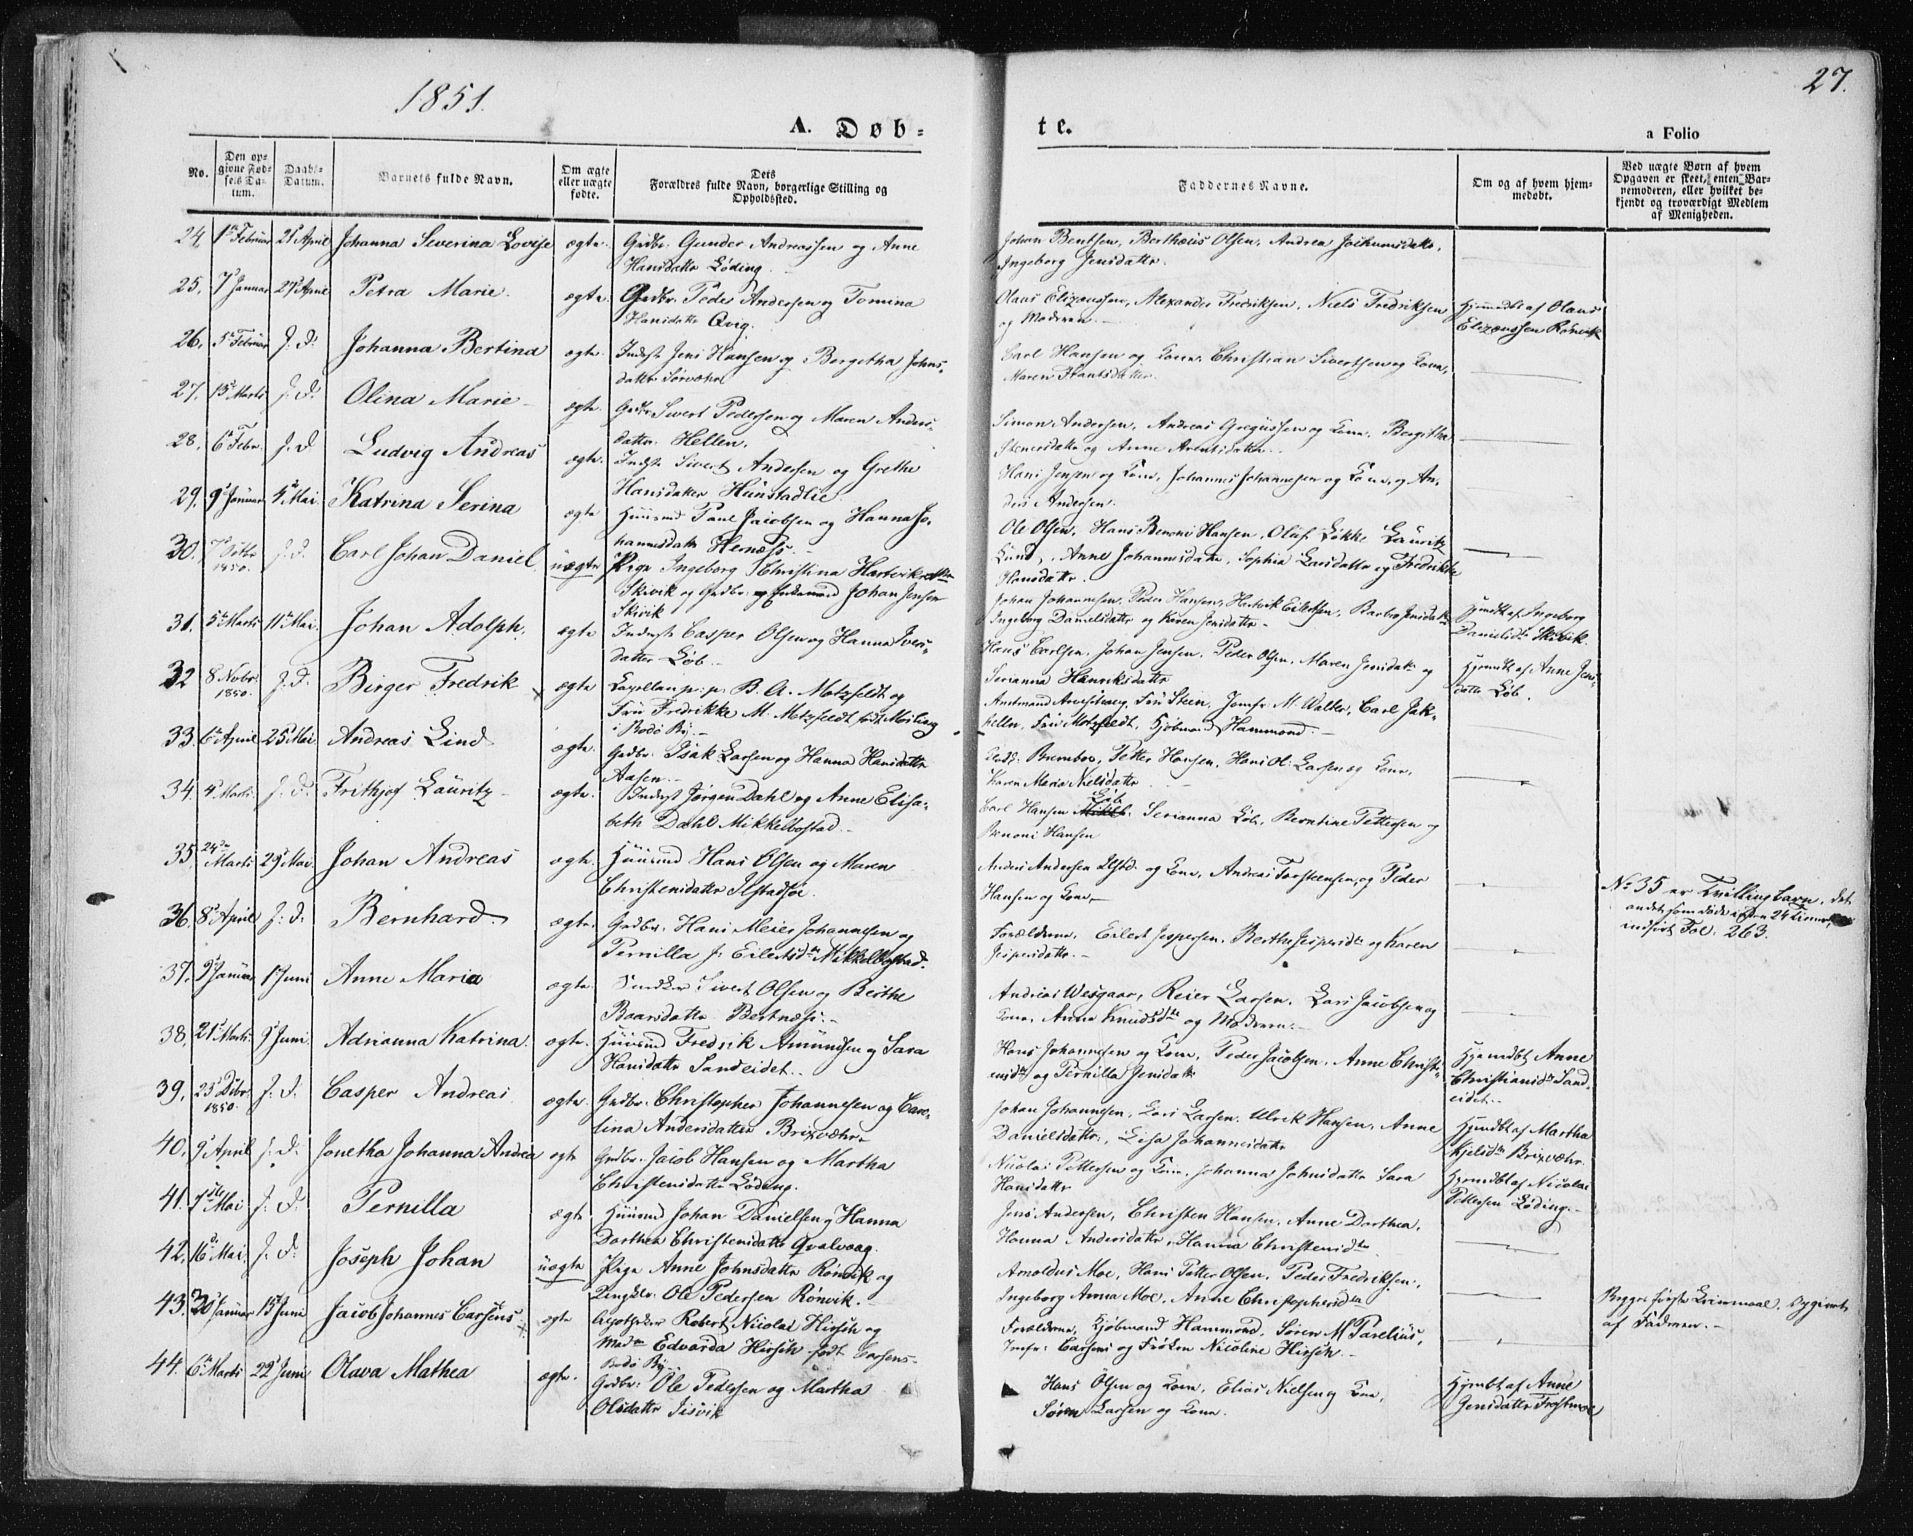 1851.
27.
A. Døb=
te.
a Folio
No.
Den op=
givne Fød=
sels Da=
tum.
Daabs=
Datum.
Barnets fulde Navn.
Om ægte
eller uægte
fødte.
Dets
Forældres fulde Navn, borgerlige Stilling og
Opholdssted.
Faddernes Navne.
Om og af hvem hjem=
medøbt.
Ved uægte Børn af hvem
Opgaven er skeet, enten Bar=
nemoderen, eller hvilket be=
kjendt og troværdigt Medlem
af Menigheden.
24. 1ste Februar 21 April Johanna Severina Lovise ægte Grdbr. Gunder Andreassen og Anne
Hansdatter Løding.
Johan Bentsen, Berthæus Olsen, Andrea Jochumsdatter,
Ingeborg Jensdatter.
25. 7 Januar 27 April Petra Marie. ægte. Grdbr. Peder Andersen og Tomina
Hansdatter Qvig.
Olaus Elizeussen, Alexander Fredriksen, Niels Fredriksen
og Moderen.
Hjmdbt af Olaus
Elizeussen Rønvik
26. 5te Februar J. D. Johanna Bertina ægte. Inderst Jens Hansen og Bergitha Johns-
datter Sørvæhr
Carl Hansen og Kone, Christian Sivertsen og Kone,
Maren Hansdatter.
27. 15 Marts J. D. Olina Marie ægte. Grdbr Sivert Pedersen og Maren Anders-
datter Hellen.
Simon Andersen, Andreas Gregussen og Kone, Bergitha
Stenersdatter og Anne Arentsdatter.
28. 6 Febr J. D Ludvig Andreas ægte. Inderst Sivert Andersen og Grethe
Hansdatter Hunstadlie.
Hans Jensen og Kone, Johannes Johannesen og Kone, og An-
ders Andersen.
29. 9 Januar 4 Mai. Katrina Serina ægte Huusmd Paul Jacobsen og Hanna Jo-
hannesdatter Hernæss.
Ole Olsen, Hans Benoni Hansen, Oluf Løkke Lauritz
Lund, Anne Johannesdatter, Sophia Larsdatter og Fredrikke
Hansdatter.
30. 7 Octbr
1850. J. D. Carl Johan Daniel. uægte Pige Ingeborg Christina Hartviksdatter
Skivik og Grdbr. og Enkemand Johan Jensen
Skivik
Johan Johannesen, Peder Hansen, Hartvik Eilertsen, Barbro Jensdatter
Ingeborg Danielsdatter og Karen Jensdatter
Hjmdbt af Ingeborg
Danielsdtr Skivik.
31. 5te Marts 11te Mai. Johan Adolph. ægte Inderst Casper Olsen og Hanna Iver-
datter Løb.
Hans Carlsen, Johan Jensen, Peder Olsen, Maren Jensdatter og
Serianna Henriksdatter
Hjemdbt af Anne Jens-
datter Løb.
32 8 Novbr.
1850. J. D. Birger Fredrik ægte Capellan p. p. B. A. Motzfeldt og
Fru Fredrikke M. Motzfeldt
i Bodø By.
Amtmand Fru Steen, Jomfr M. Walter, Carl Jak-
helln, Fru Motzfeldt, Kjøbmand Hammond.
33. 6te April 25 Mai. Andreas Lind ægte Grdbr. Isak Larsen og Hanna Hansdatter
Aasen.
Bremboe, Petter Hansen, Hans Ol: Larsen og Kone,
Karen Maria Nielsdatter
34. 4 Marts J. D. Frithjof Lauritz ægte. Inderst Jørgen Dahl og Anne Elisa-
beth Dahl Mikkelbostad.
Løb
Carl Hansen, Serianna Løb, Berntine Pettersen og
Benoni Hansen
35. 24de
Marts 29 Mai. Johan Andreas ægte. Huusmd Hans Olsen og Maren
Christensdatter Ilstadsøe.
Anders Andersen Ilstd. og Kone, Andreas Torstensen, og Peder
Hansen og Kone,
No 35 er Tvillingbarn, det
andet som døde inden 24 Timer
indført Fol. 263.
36. 8 April J. D. Bernhard. ægte. Grdbr. Hans Meier Johannesen og
Pernilla J. Eilertsdtr Mikkelbostad.
Forældrene, Eilert Jespersen, Berthe Jespersdtr og Karen
Jespersdatter.
37. 9 Januar 1 Juni Anne Maria ægte. Sivert Olsen og Berthe
Baarsdatter Bertnæss.
Andreas Wesgaar, Reier Larsen, Lars Jacobsen og
Kone, Anne Knudsdtr og Moderen.
38. 21 Marts 9 Juni Adrianna Katrina. ægte. Huusmd Fredrik Amundsen og Sara
Hansdatter Sandeidet.
Hans Johannesen og Kone, Peder Jacobsen, Anne Christi-
ansdtr og Pernilla Jensdatter
Hjemdbt Anne
Christiansdtr Sand-
eidet.
39. 25 Dcbr.
1850. J. D. Casper Andreas ægte. Grdbr. Christopher Johannesen og Caro-
lina Andersdatter Brixvæhr.
Johan Johannesen, Lars Larsen, Ulrik Hansen, Anne
Danielsdatter, Lisa Johannesdatter
Hjmdbt af Martha
Kjelsdtr Brixvæhr.
40. 9 April J. D. Jonetha Johanna Andrea ægte Grdbr. Jacob Hansen og Martha
Christensdatter Løding.
Nicolai Pettersen og Kone, Johanna Johnsdatter Sara
Hansdatter
Hjemdbt af Nicolai
Pettersen Løding.
41. 1ste Mai J. D. Pernilla ægte Huusmd Johan Danielsen og Hanna
Dorthea Christensdatter Qvalvaag.
Jens Andersen, Christen Hansen, Anne Dorthea,
Hanna Andersdatter, Hanna Christensdtr
42. 16 Mai. J. D. Joseph Johan uægte Pige Anne Johnsdatter Rønvik og
Ungkr. Ole Pedersen Rønvik.
Arnoldus Moe, Hans Petter Olsen, Peder Fredriksen,
Ingeborg Anna Moe, Anne Christophersdtr
Begges første Leiermaal. Opgivet
af Faderen.
43. 30 Januar 15 Juni Jacob Johannes Carsens ægte Apotheker Robert Nicolai Hirsch og
Madm Edvarda Hirsch født Carsens
Bodø By.
Forældrene, Kjøbmand Hammond, Søren M Parelius,
Jomfr: Carsens og Frøken Nicoline Hirsch.
44. 6te Marts 22 Juni Olava Mathea ægte. Grdbr: Ole Pedersen og Martha
Olsdatter Jisvik
Hans Olsen og Kone, Elias Nielsen og Kone,
Søren Larsen og Kone.
Hjmdbt af Anne
Jensdatter Frostmoe